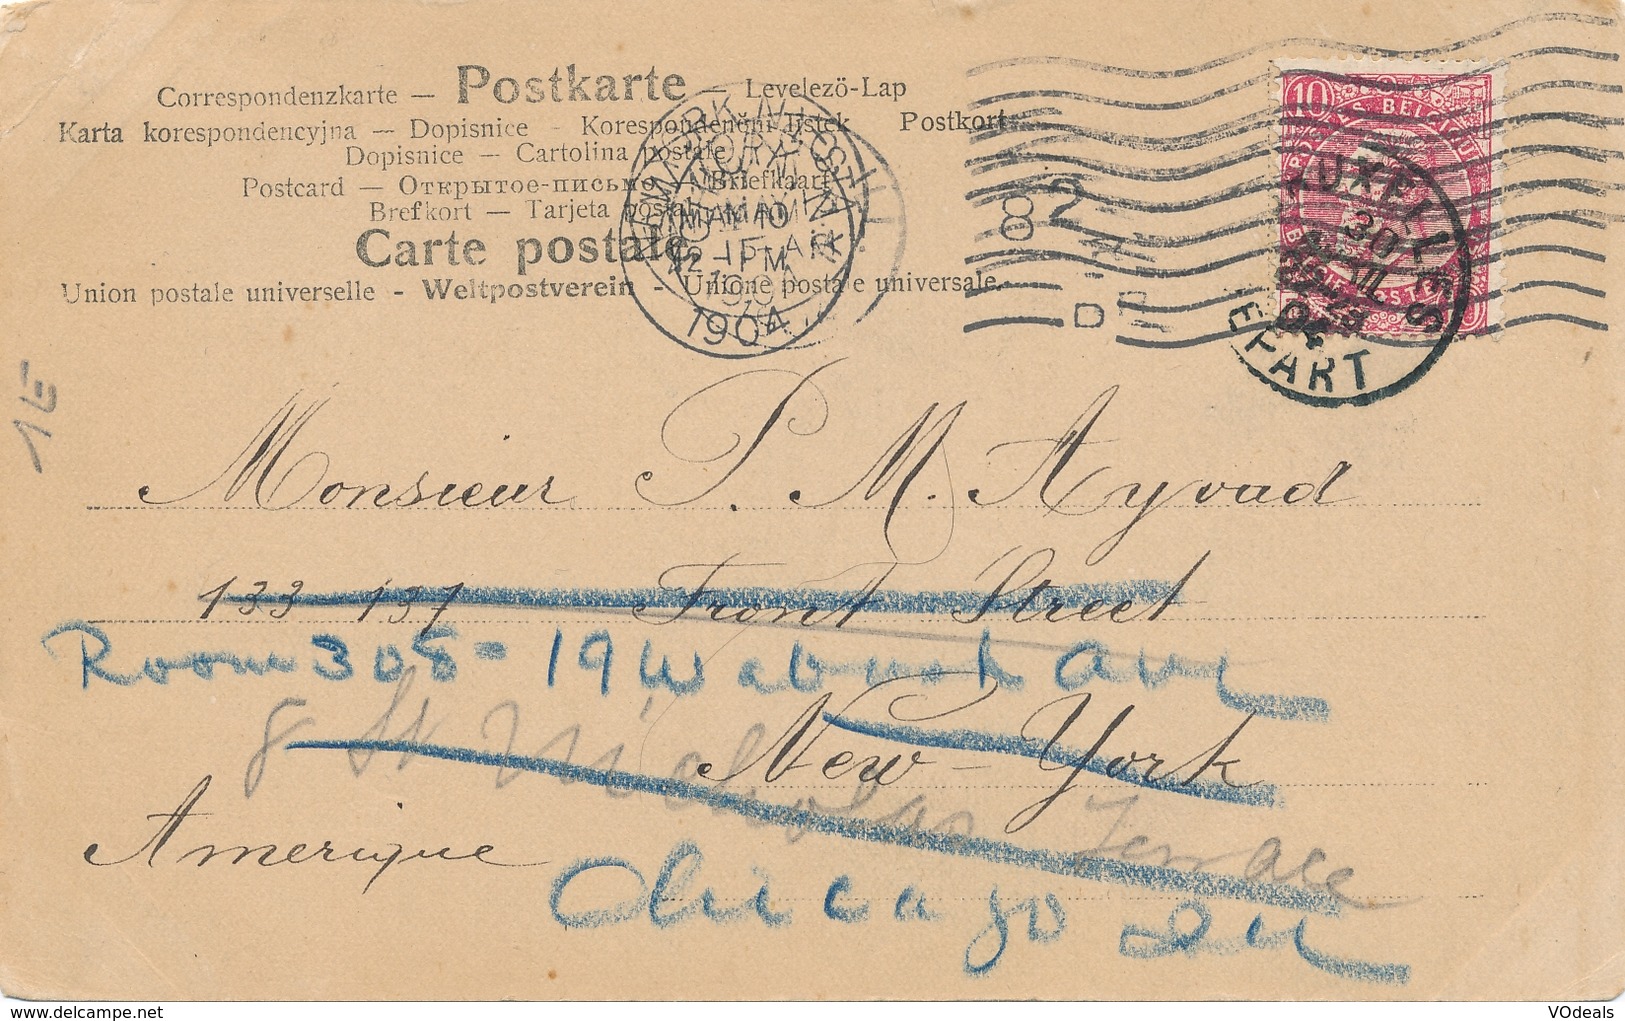 Correspondenzkarte — Postkarte — Levelezö-Lap
Karta korespondencyjna — Dopisnice - Korespondenční lístek Postkort
Dopisnice — Cartolina postale
Postcard — Открытое-письмо — Briefkaart
Brefkort — Tarjeta postal
Carte postale
Union postale universelle - Weltpostverein - Unione postale universale.
10
BRUXELLES
30
AVRIL
04
DEPART
12-1PM
1904
1E
Monsieur P. M. Ayvad
133 - 137 Front Street
Room 308 - 19 Wabash Ave
8 St Nicholas Terrace
New-York
Amerique
Chicago Ill
VOdeals